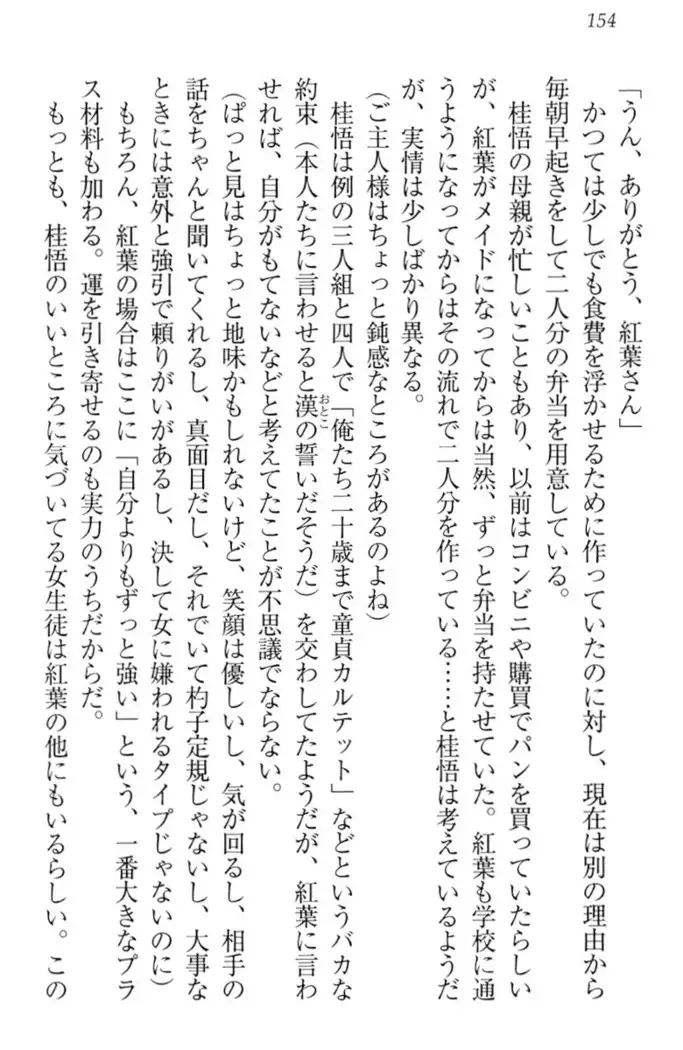 154
「うん、ありがとう、紅葉さん」
　かつては少しでも食費を浮かせるために作っていたのに対し、現在は別の理由から
毎朝早起きをして二人分の弁当を用意している。
　桂悟の母親が忙しいこともあり、以前はコンビニや購買でパンを買っていたらしい
が、紅葉がメイドになってからは当然、ずっと弁当を持たせていた。紅葉も学校に通
うようになってからはその流れで二人分を作っている……と桂悟は考えているようだ
が、実情は少しばかり異なる。
（ご主人様はちょっと鈍感なところがあるのよね）
　桂悟は例の三人組と四人で「俺たち二十歳まで童貞カルテット」などというバカな
約束（本人たちに言わせると漢の誓いだそうだ）を交わしてたようだが、紅葉に言わ
おとこ
せれば、自分がもてないなどと考えてたことが不思議でならない。
（ぱっと見はちょっと地味かもしれないけど、笑顔は優しいし、気が回るし、相手の
話をちゃんと聞いてくれるし、真面目だし、それでいて杓子定規じゃないし、大事な
ときには意外と強引で頼りがいがあるし、決して女に嫌われるタイプじゃないのに）
　もちろん、紅葉の場合はここに「自分よりもずっと強い」という、一番大きなプラ
ス材料も加わる。運を引き寄せるのも実力のうちだからだ。
　もっとも、桂悟のいいところに気づいてる女生徒は紅葉の他にもいるらしい。この